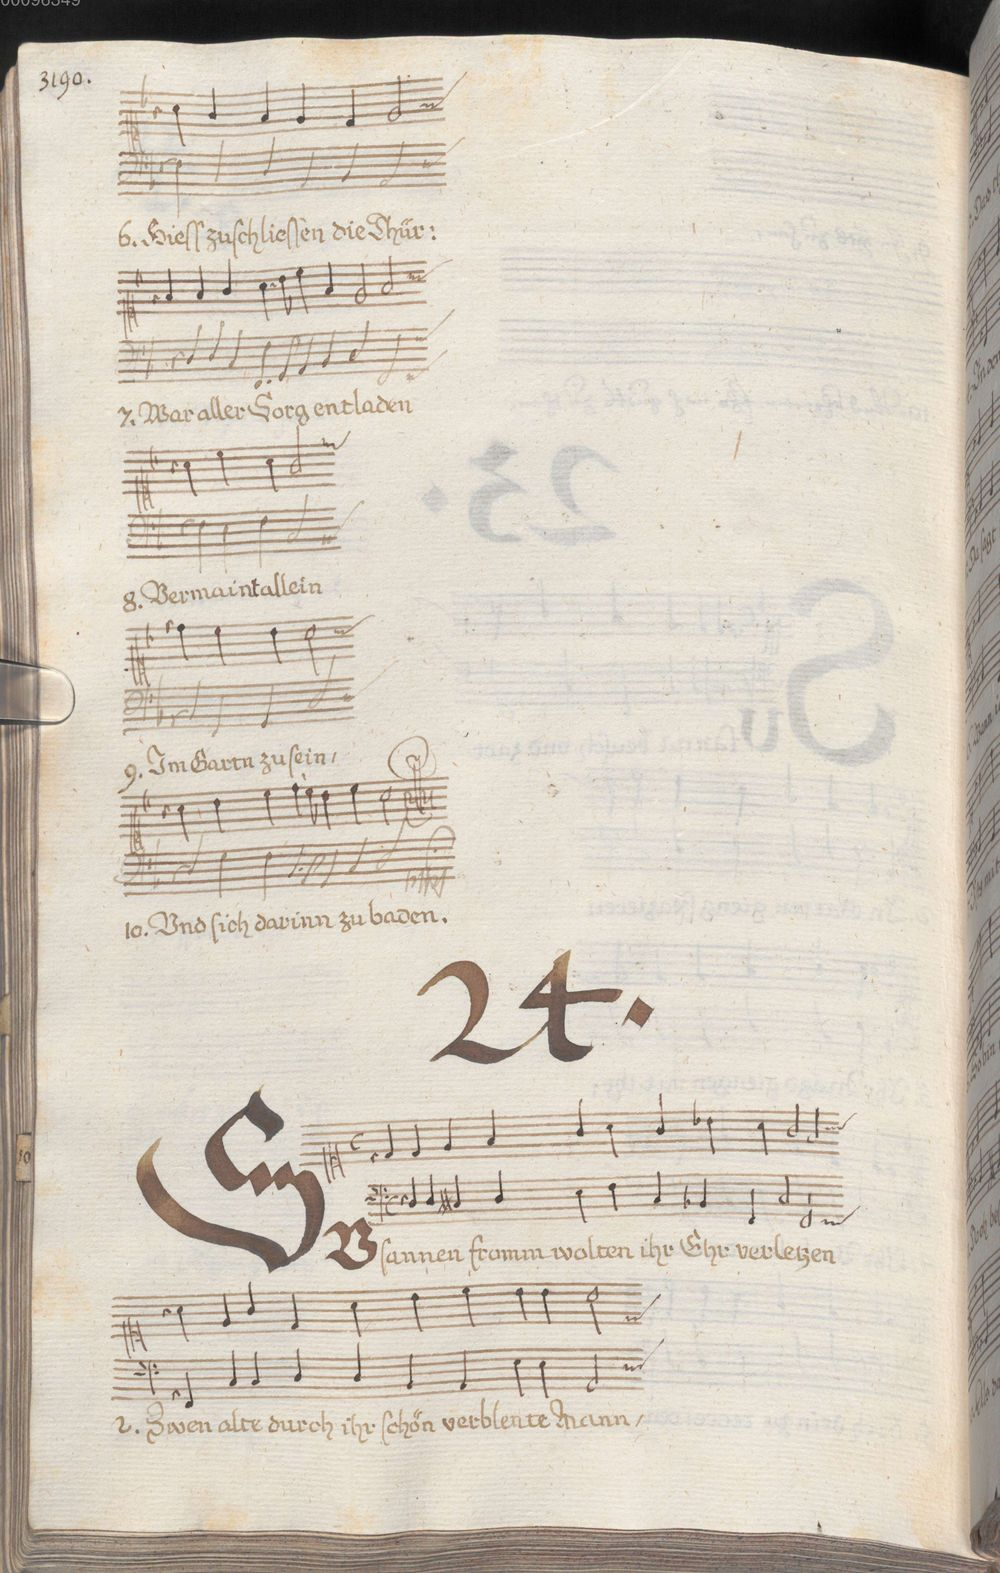 00096349
3190.
6. Hiess zuschliessen die Thür:
7. War aller Sorg entladen
8. Vermaint allein
9. Im Gartn zu sein/
10. Vnd sich darinn zu baden.
24.
SVsannen fromm wolten ihr Ehr verletzen
2. Zwen alte durch ihr schön verblente Mann/